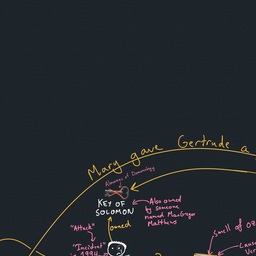 Mary gave Gertrude a
Almanac of Demonology
KEY OF
SOLOMON
Also owned
by someone
named MacGregor
Matthews
owned
"Attack"
"Incident"
1994
smell of oz